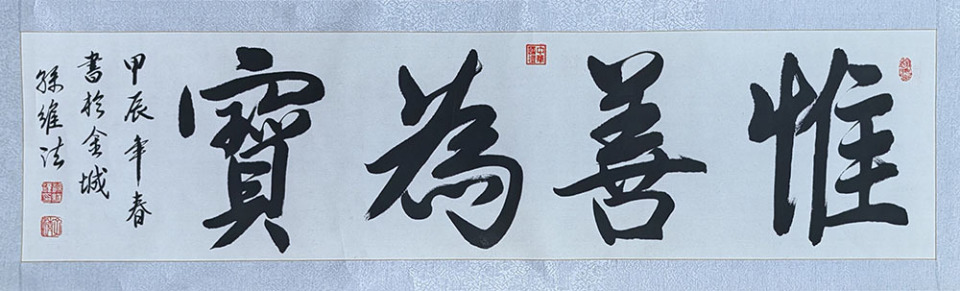 惟善為寶
甲辰年春
書於金城
孫維法